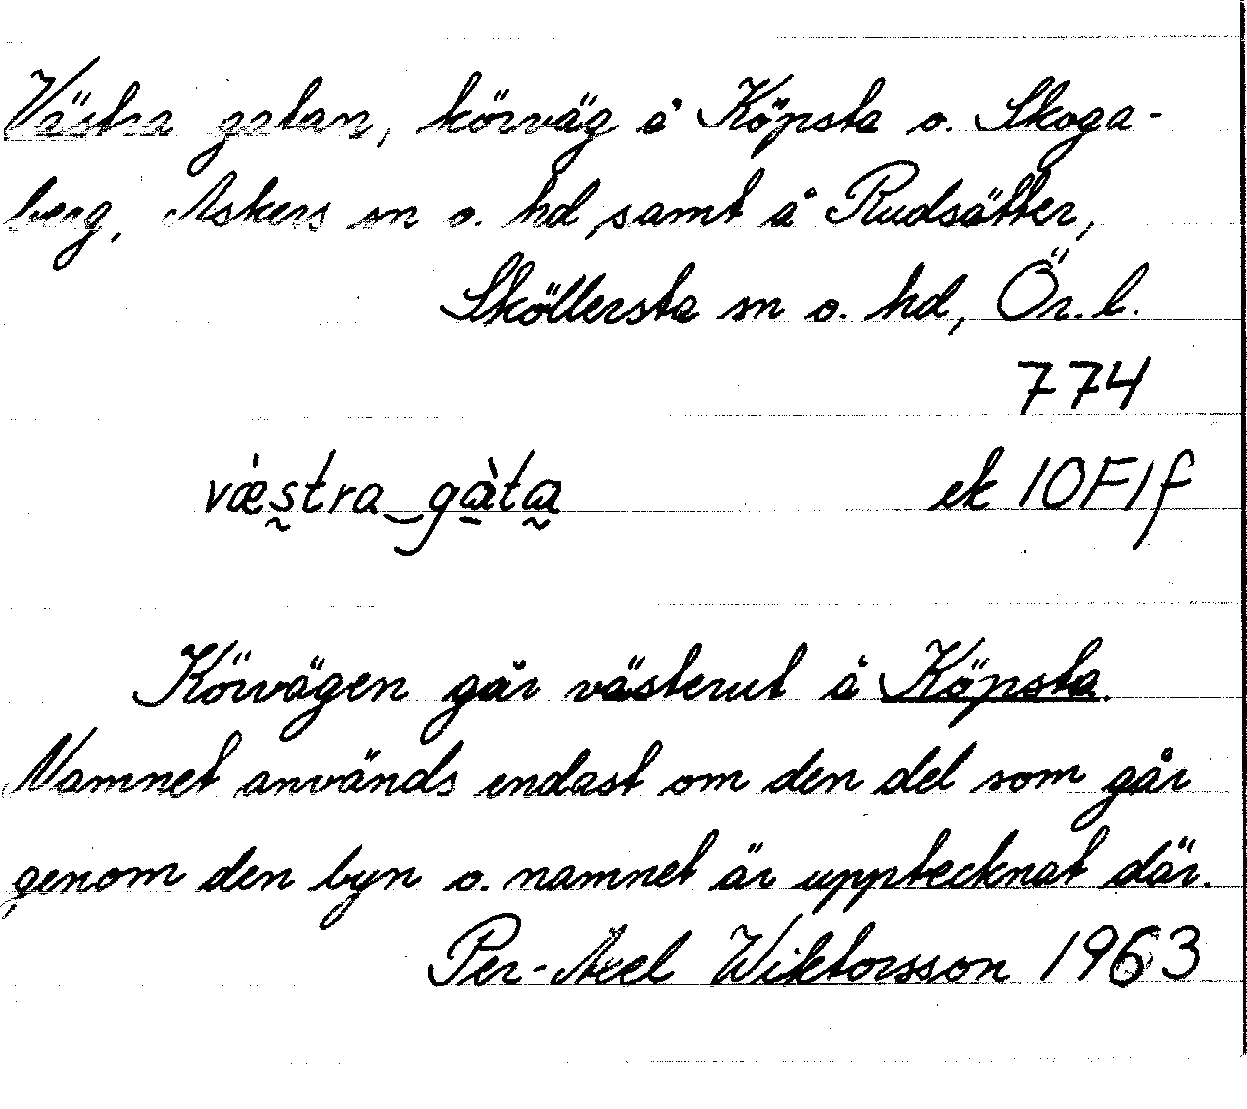 Västra gatan, körväg å Köpsta o. Skoga-
berg, Askers sn o. hd, samt å Rudsätter,
Sköllersta sn o. hd, Ör. l.
774
væ̀s̰tra‿gà̱ta̰ ek 10F1f
Körvägen går västerut å Köpsta.
Namnet används endast om den del som går
genom den byn o. namnet är upptecknat där.
Per-Axel Wiktorsson 1963